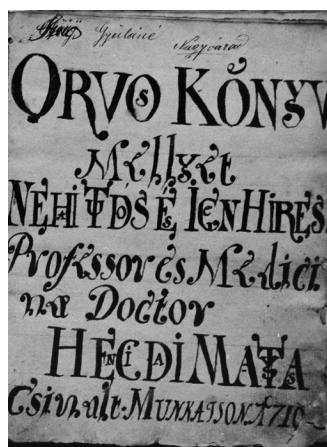 Gyuláné
Nagyvárad
ORVOS KÖNYV
Mellyet
NÉHAI TUDÓS ÉS IGEN HIRES
Professor és Medici
næ Doctor
HEGEDI MATA
Csinált. MUNKATSON A 1710